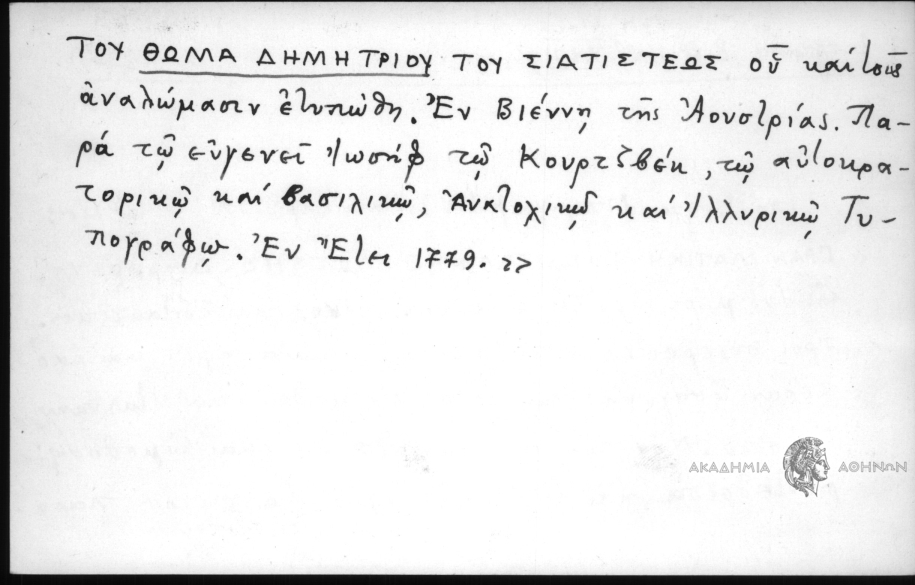 ΤΟΥ ΘΩΜΑ ΔΗΜΗΤΡΙΟΥ ΤΟΥ ΣΙΑΤΙΣΤΕΩΣ οὗ καί τοῖς
ἀναλώμασιν ἐτυπώθη. Ἐν Βιέννῃ τῆς Ἀουστρίας. Πα-
ρά τῷ εὐγενεῖ Ἰωσήφ τῷ Κουρτζβέκ, τῷ αὐτοκρα-
τορικῷ καί βασιλικῷ, Ἀνατολικῷ καί Ἰλλυρικῷ Τυ-
πογράφῳ. Ἐν Ἔτει 1779. >>
ΑΚΑΔΗΜΙΑ ΑΘΗΝΩΝ